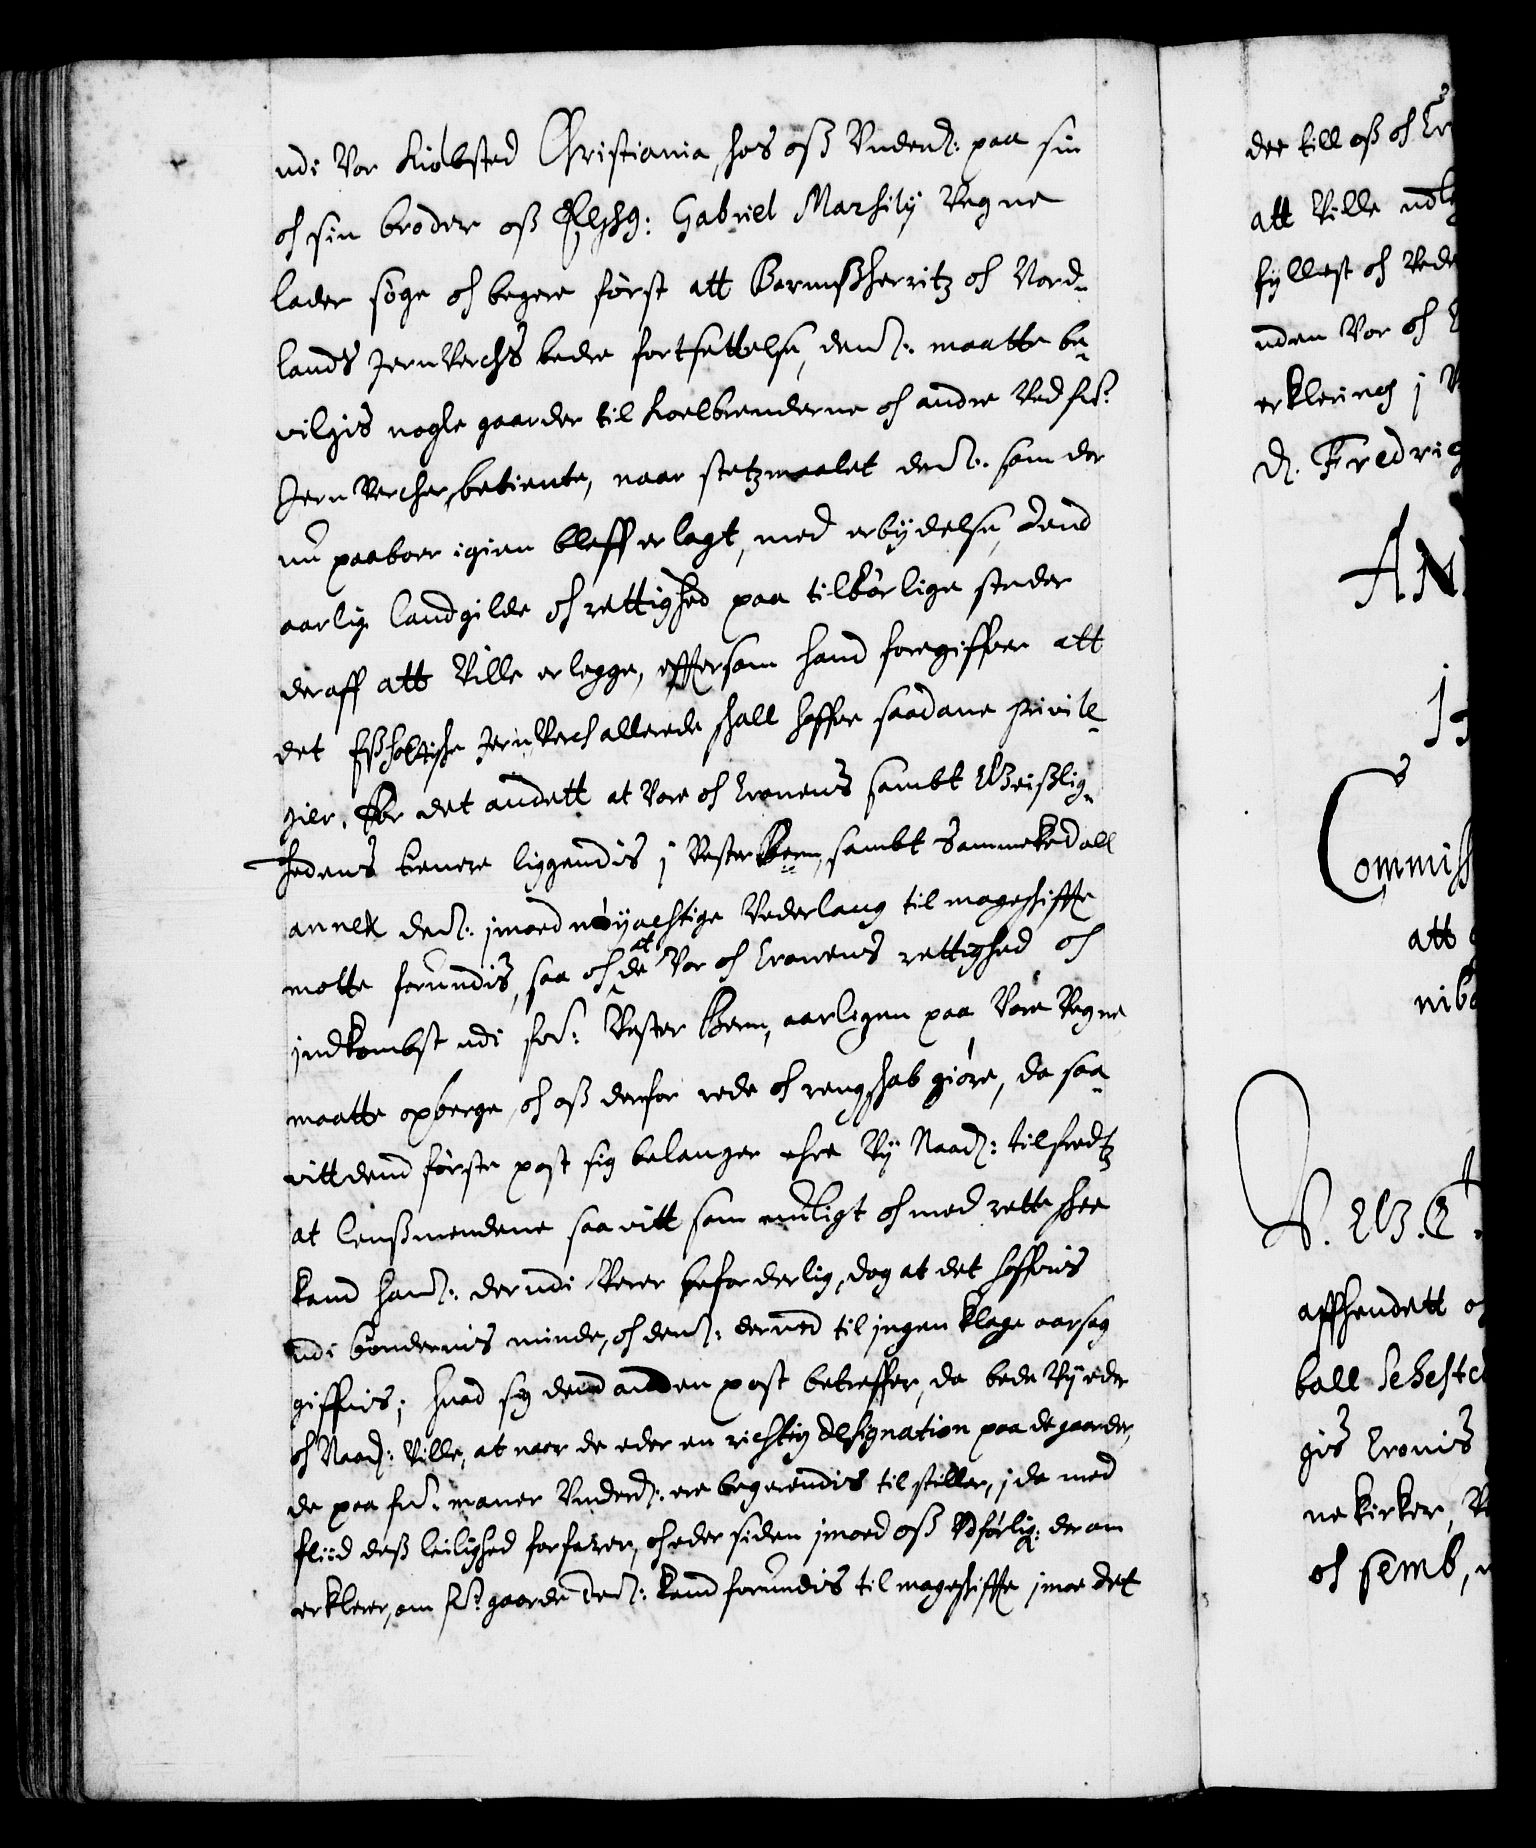 udi Vor Kiøbsted Christiania, hos oß Underd: paa sin
oc sin broder oß Elshg: Gabriel Marsilij Vegne
lader søge oc begere først att Barumßherritz oc Nord-
lands JernVerchs bedre fortsettelse, dend: maatte be-
vilgis nogle gaarder til Koelbrenderne oc andre Ved for:
Jern Vercher betiente, naar stetzmaalet dend: som der
nu paaboer igien bleff erlagt, med erbydelse, dend
aarlig landgilde oc rettighed paa tilbørlige steder
deraff att Ville erlegge, eftersom hand foregiffuer att
det JernVerch allerede shall haffue saadane privile-
gier, For det andett at Vore oc Cronens sambt Geistlig-
hedens tiener liggendis i VesterBerum, sambt Sammekedall
annex dend: imoed nøyachtige Vederlaug til mageshiffte
motte forundis, saa oc at de Vor oc Cronens rettighed oc
indkombst udi for: Vester Berum, aarligen paa Vore Vegne
maatte opberge, oc oß derfor rede oc rengshab giøre, da saa-
vitt dend første post sig belanger ehre Vy Naad: tilfredtz
at lenßmendene saa vitt som muligt oc med rette shee
kand hand: derudi Verer beforderlig, dog at det haffuis
udi bøndernis minde, oc dend: dermed til ingen klage aarsag
giffuis; huad sig dend anden post betreffer, da bede Vy eder
oc Naad: Ville, at naar de eder en richtig designation paa de gaarder,
de paa for: maner Underd: ere begerendis tilstiller, i da med
fliid deß leilighed forfarer, oc eder siden imoed oß Udførlig: derom
erklerer, om for: gaarde dend: kand forundis til mageshiffte imoe det
dee till oß oc Cr
att Ville udle
fyllest oc Vede
uden Vor oc
erklering i V
d. Fredrig
AN
Commiss
att
nib
affhendett o
ball Sehested
gis Cronis
ne kirker, V
oc Semb,